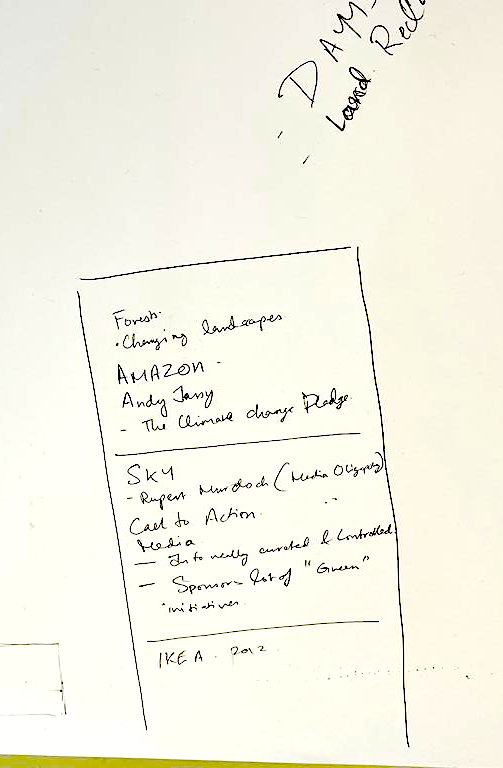 - DAYM
- Land Recl
Forests.
• Changing landscapes
AMAZON -
Andy Jassy
- The Climate change Pledge.
SKY
- Rupert Murdoch (Media Oligopoly)
Call to Action.
Media
— curated & Controlled.
— Sponsors lot of "Green"
initiatives.
IKEA. 2012